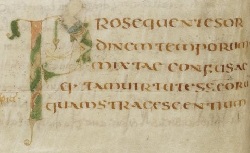 PROSEQUENTES OR
DINEM TEMPORUM
MIXTAE CONFUSAE
Q· TAM UIRTUTES S̅C̅ORU
QUAM STRAGES GENTIUM